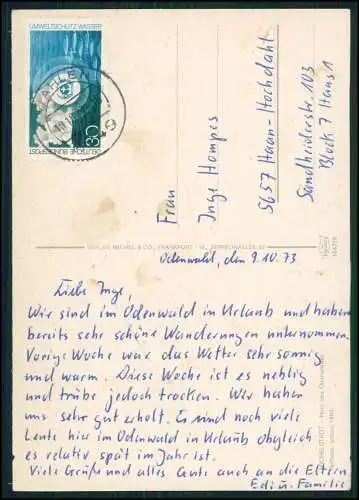 UMWELTSCHUTZ: WASSER
30
DEUTSCHE BUNDESPOST
Frau
Inge Hompes
5657 Haan-Hochdahl
Sandheiderstr. 103
Block 7 Haus 1
VERLAG MICHEL & CO., FRANKFURT
Odenwald, den 9.10.73
Liebe Inge,
Wir sind im Odenwald in Urlaub und haben
bereits sehr schöne Wanderungen unternommen.
Vorige Woche war das Wetter sehr sonnig
und warm. Diese Woche ist es neblig
und trübe jedoch trocken. Wir haben
uns sehr gut erholt. Es sind noch viele
Leute hier im Odenwald in Urlaub obgleich
es relativ spät im Jahr ist.
Viele Grüße und alles Gute auch an die Eltern
Edi u. Familie